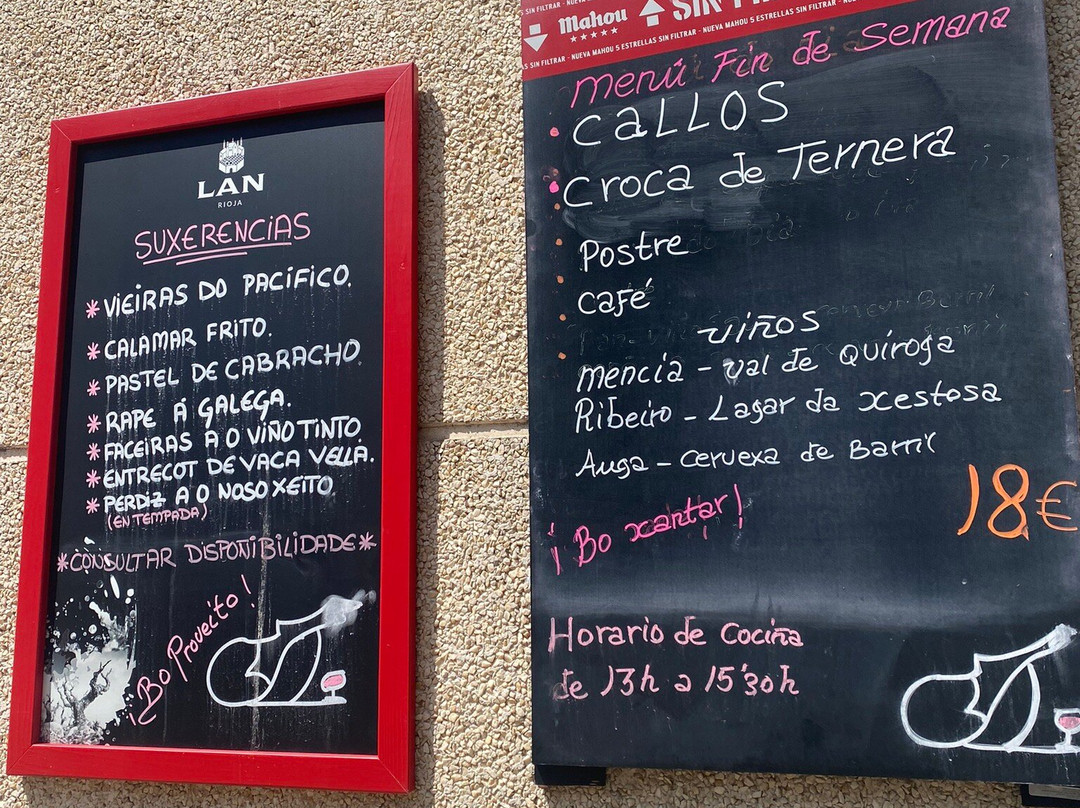 LAN
RIOJA
SUXERENCIAS
* VIEIRAS DO PACÍFICO.
* CALAMAR FRITO.
* PASTEL DE CABRACHO.
* RAPE Á GALEGA.
* FACEIRAS A O VIÑO TINTO.
* ENTRECOT DE VACA VELLA.
* PERDIZ A O NOSO XEITO.
(EN TEMPADA)
*CONSULTAR DISPOÑIBILIDADE*
¡Bo Proveito!
S SIN FILTRAR - NUEVA MAHOU 5 ESTRELLAS SIN FILTRAR -
Mahou
SIN
AS SIN FILTRAR - NUEVA MAHOU 5 ESTRELLAS SIN FILTRAR - NUEVA MAHOU 5 ESTRELLAS SIN FILTRAR
menú Fin de semana
• CALLOS
• Croca de Ternera
Postre
café
viños
mencía - val de Quiroga
Ribeiro - Lagar da xestosa
Auga - cervexa de Barril
18€
¡Bo xantar!
Horario de Cociña
de 13h a 15'30h